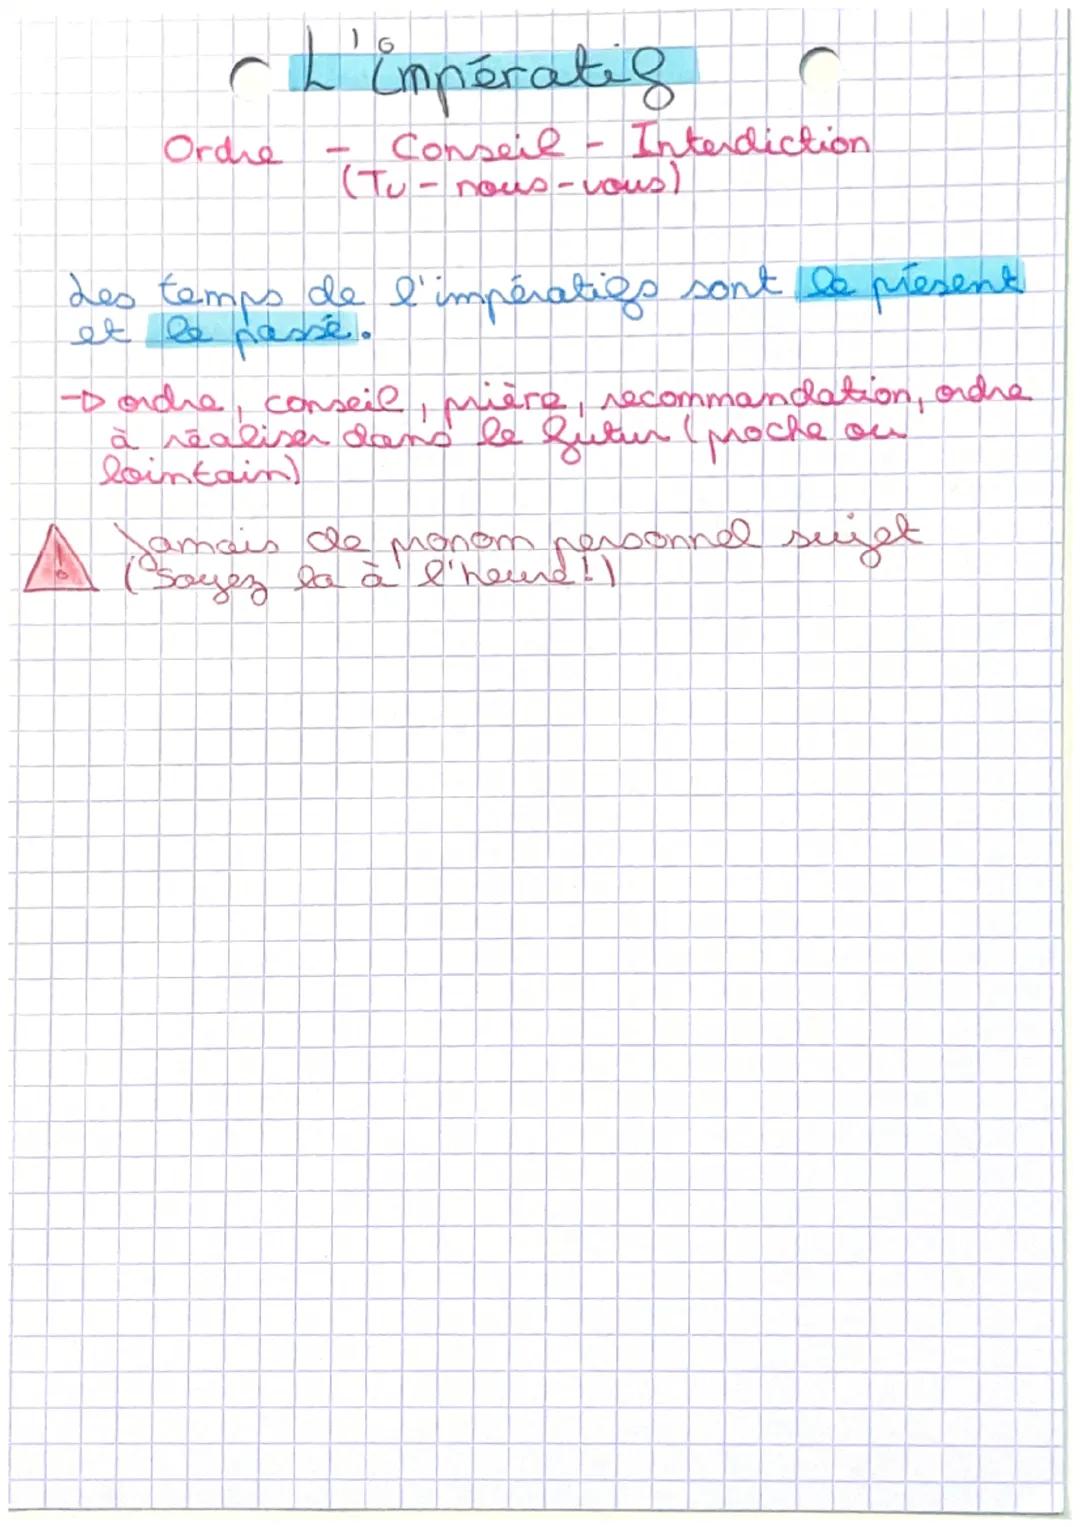 L'impératif
Ordre - Conseil - Interdiction
(Tu - nous - vous)
Les temps de l'impératifs sont le présent
et le passé.
→ ordre, conseil, prière, recommandation, ordre
à réaliser dans le futur (proche ou
lointain)
! Jamais de pronom personnel sujet
(Soyez la à l'heure!)